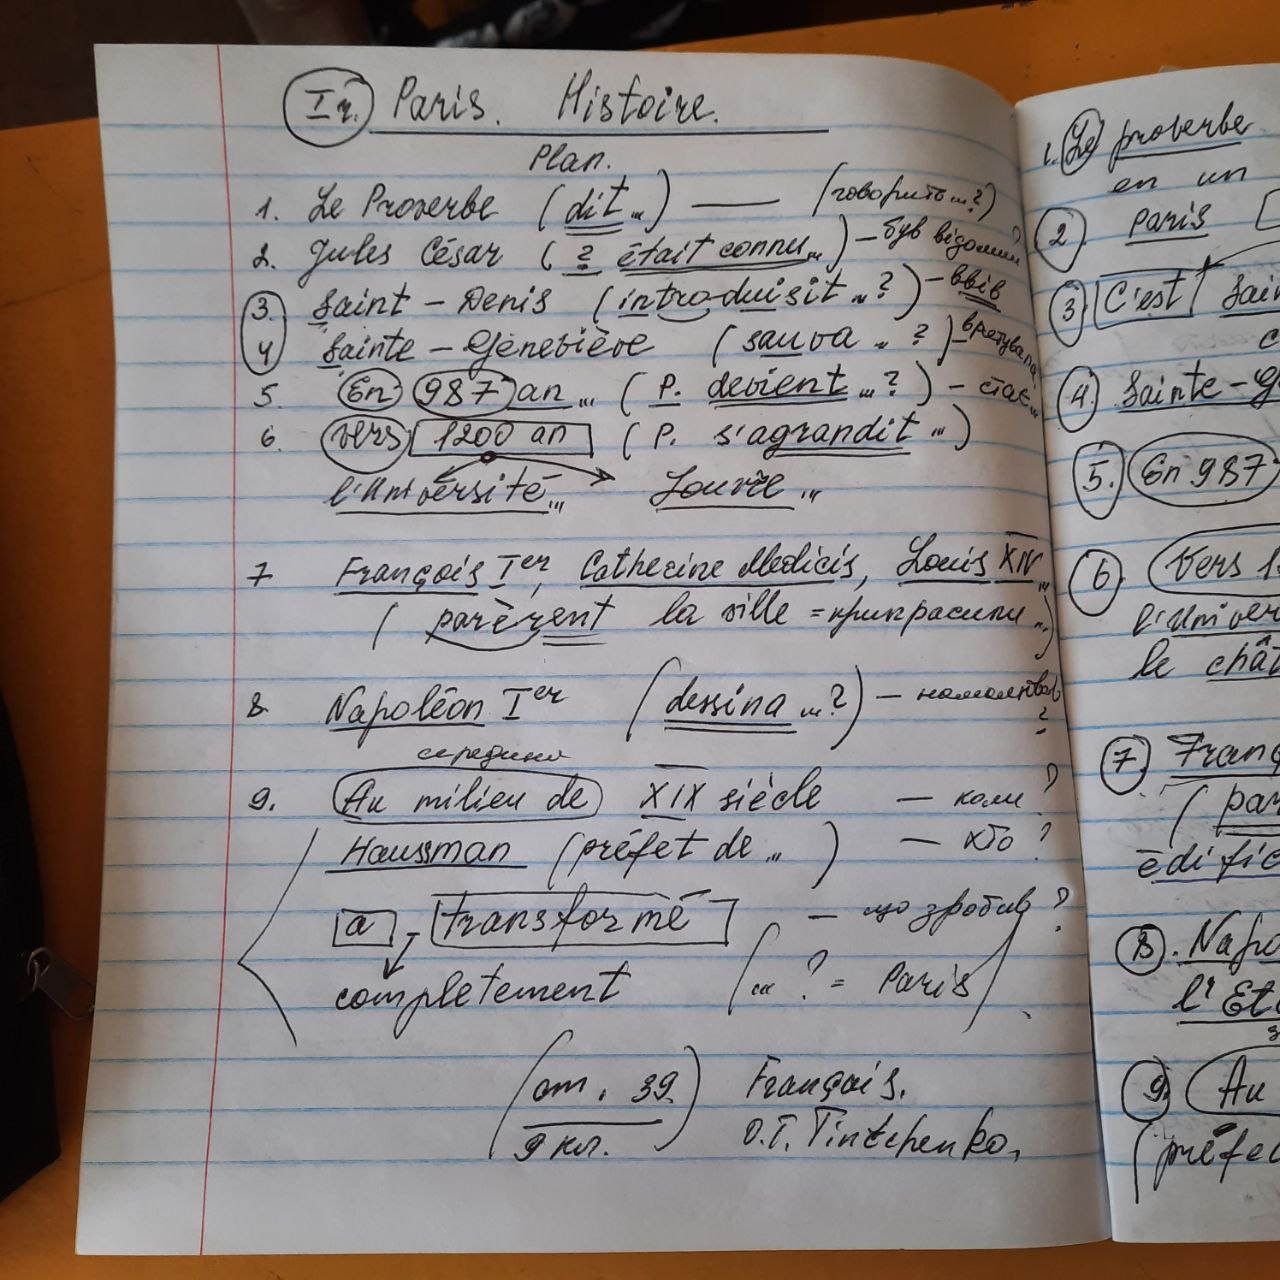 I г. Paris. Histoire.
Plan.
1. Le Proverbe (dit...) — (говорить...?)
2. Jules César (? était connu...) – був відомий ?
3. Saint-Denis (introduisit...?) – ввів
4 Sainte-Geneviève (sauva ... ?) – врятувала
5. En 987 an ... (P. devient ...?) – стає...
6. vers 1200 an (P. s'agrandit ...)
l'Université... Louvre ...
7 François Ier, Catherine Medicis, Louis XIV ...
(parèrent la ville = прикрасили ...)
8. Napoléon Ier (dessina ...?) – намалював ?
середина
9. Au milieu de XIX siècle — коли ?
Hausman (préfet de ... ) — хто ?
a transformé — що зробив ?
completement (... ? = Paris)
(ст. 39) Français.
9 кл. O.T. Tintchenko.
1. Le proverbe
en un
2 Paris
3 C'est Sain
4. Sainte-G
5. En 987
6 Vers 1
l'Univer
le chât
7 Franç
(par
édific
8. Napo
l'Et
9. Au
(préfec